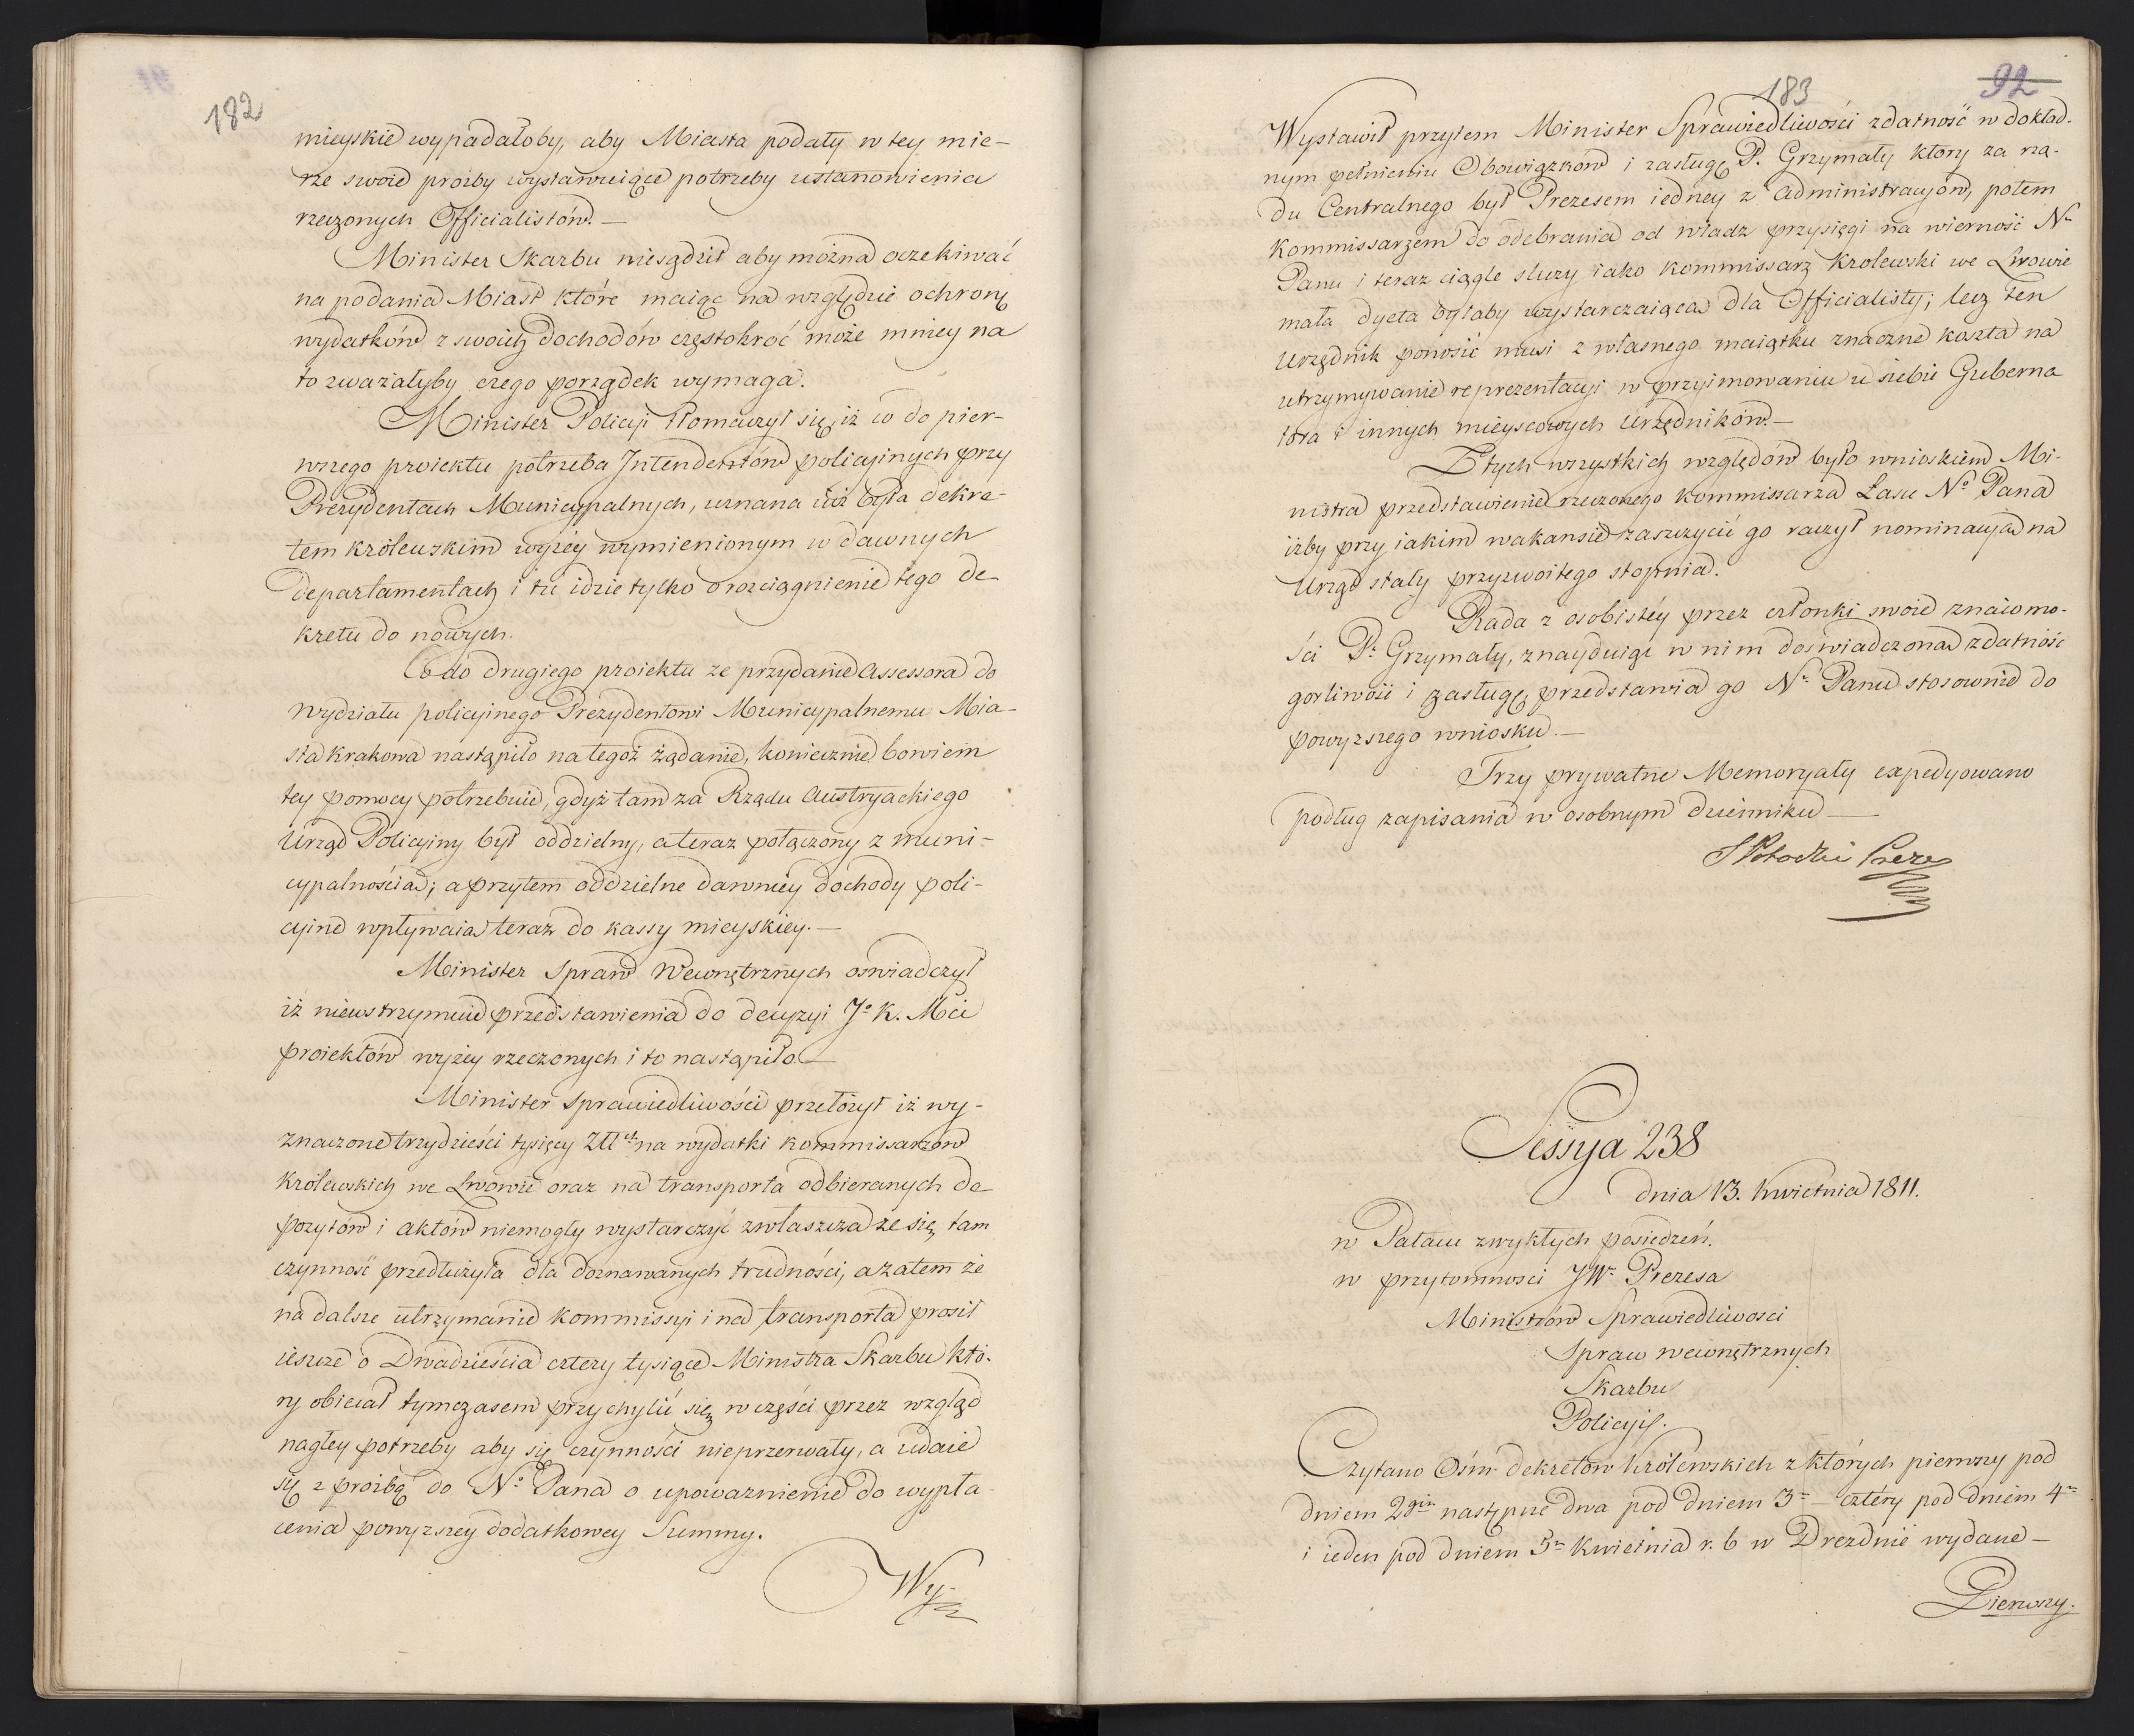 182
mieyskie wypadałoby, aby Miasta podały w tey mie-
rze swoie proźby wystawuiące potrzeby ustanowienia
rzeczonych Officialistów. —
Minister Skarbu niesądził aby można oczekiwać
na podania Miast które maiąc na względzie ochronę
wydatków z swoich dochodów częstokroć może mniey na
to zważałyby czego porządek wymaga.
Minister Policyi tłomaczył się, iż co do pier-
wszego proiektu potrzeba Intendentów policyinych przy
Prezydentach Municypalnych, uznana iuż była dekre-
tem królewskim wyżey wymienionym w dawnych
departamentach i tu idzie tylko o rozciągnienie tego de
kretu do nowych.
Co do drugiego proiektu ze przydanie Assessora do
wydziału policyinego Prezydentowi Municypalnemu Mia-
sta Krakowa nastąpiło na tegoż żądanie, koniecznie bowiem
tey pomocy potrzebuie, gdyż tam za Rządu Austryackiego
Urząd Policyiny był oddzielny, a teraz połączony z muni-
cypalnością; a przytem oddzielne dawniey dochody poli-
cyine wpływaią teraz do kassy mieyskiey. —
Minister Spraw Wewnętrznych oświadczył
iż niewstrzymuie przedstawienia do decyzyi Jo K. Mci
proiektów wyżey rzeczonych i to nastąpiło —
Minister Sprawiedliwości przełożył iż wy-
znaczone trzydzieści tysięcy Złłch na wydatki kommissarzów
królewskich we Lwowie oraz na transporta odbieranych de
pozytów i aktów niemogły wystarczyć zwłaszcza ze się tam
czynność przedłużyła dla doznawanych trudności, a zatem że
na dalsze utrzymanie kommissyi i na transporta prosił
ieszcze o Dwadzieścia cztery tysiące Ministra Skarbu któ-
ry obiecał tymczasem przychylić się w części przez wzgląd
nagłey potrzeby aby się czynności nieprzerwały, a udaie
się z proźbą do No Pana o upoważnienie do wypła-
cenia powyższey dodatkowey Summy.
Wy-
183
92
Wystawił przytem Minister Sprawiedliwości zdatność w dokład-
nym pełnieniu Obowiązków i zasługę P. Grzymały który za rzą-
du Centralnego był Prezesem iedney z Administracyów, potem
Kommissarzem do odebrania od władz przysięgi na wierność Nu
Panu i teraz ciągle służy iako kommissarz Krolewski we Lwowie
mała dyeta byłaby wystarczaiąca dla Officialisty; lecz ten
Urzędnik ponosić musi z własnego maiątku znaczne koszta na
utrzymywanie reprezentacyi w przyimowaniu u siebie Guberna
tora i innych mieyscowych Urzędników. —
Z tych wszystkich względów było wnioskiem Mi-
nistra przedstawienie rzeczonego kommissarza Łasce No Pana
iżby przy iakim wakansie zaszczycić go raczył nominacyą na
Urząd stały przyzwoitego stopnia.
Rada z osobistéy przez członki swoie znaiomo-
ści P. Grzymały, znayduiąc w nim doświadczoną zdatność
gorliwość i zasługę, przedstawia go Nu Panu stosownie do
powyższego wniosku. —
Trzy prywatne Memoryały expedyowano
podług zapisania w osobnym dzienniku —
S Potocki Prezes
Sessya 238
dnia 13. kwietnia 1811.
w Pałacu zwykłych posiedzeń.
w przytomności JW. Prezesa
Ministrów Sprawiedliwosci
Spraw wewnętrznych
Skarbu
Policyi.
Czytano Ośm dekretów królewskich z których pierwszy pod
dniem 2gim następne dwa pod dniem 3m — cztéry pod dniem 4m
i ieden pod dniem 5m Kwietnia r. b w Drezdnie wydane —
Pierwszy.